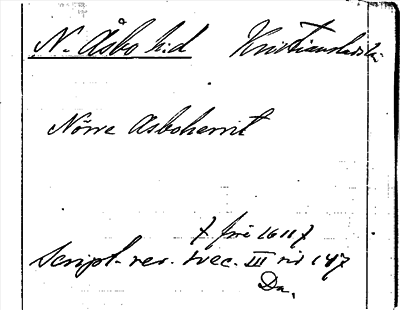 N. Åsbo h:d Kristianstads l:
Nörre Asboherrit
7/ 1611
Script. rer. svec. III sid 147
Da.